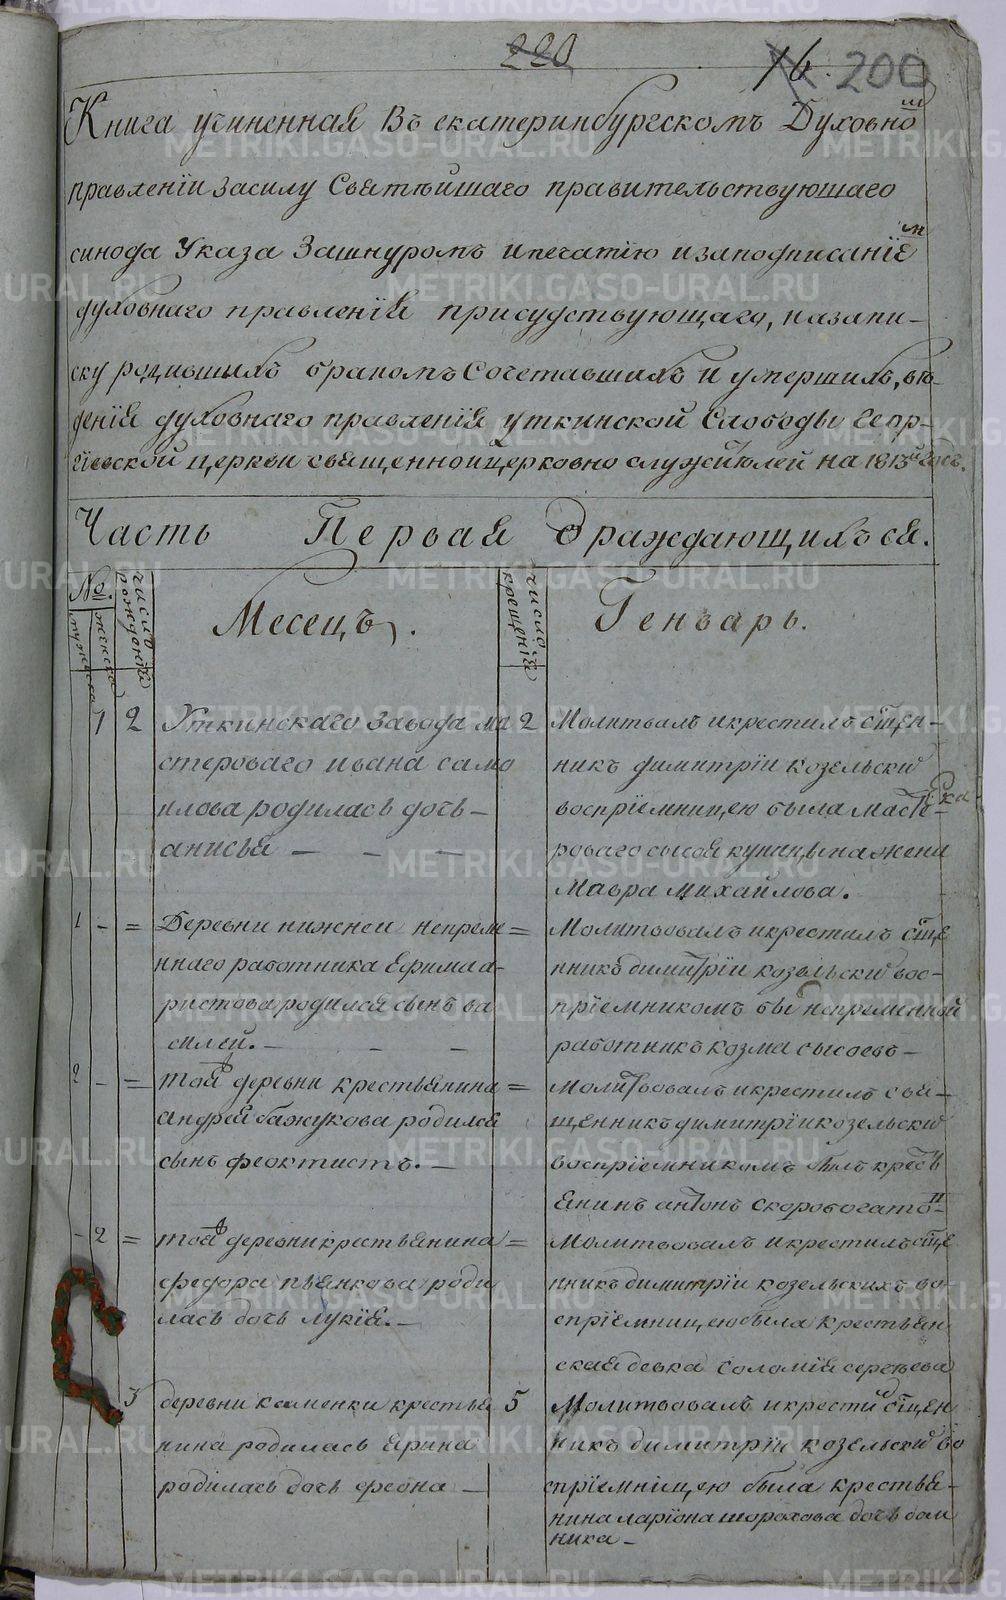 220
16. 200
Книга учиненная Въ екатеринбургскомъ Духовно м
правленіи засилу Святѣйшаго правительствующаго
синода Указа Зашнуромъ ипечатію изаподписаніе м
духовнаго правленія присудствующаго, назапи-
ску родившихъ бракомъ Сочетавшихъ И умершихъ, вѣ-
денія духовнаго правленія уткинской Слободы Геор-
гіевской церкви священноицерковно служителей на 1813й годъ.
Часть Первая Ораждающихъся.
№.
мужеска
женска
число рожденія
Месецъ.
число крещенія
Генварь.
1 2 Уткинскаго завода ма
стероваго ивана само
илова родилась дочь -
анисья — — —
2 Молитвалъ икрестилъ сщен-
никъ димитріи козельски
воспріемницею была масте-
роваго сысоя купцына жена
Мавра михайлова.
1 - = Деревни нижнеи непреме
ннаго работника Ефима а-
ристова родился сынъ ва
силей. — — —
= Молитвовалъ икрестилъ сще
нникъ димитріи козельски вос-
пріемникомъ бы непременной
работникъ козма сысоевъ —
2 - = тоя деревни крестьянина
андрея бажукова родился
сынъ феоктистъ. —
= молитвовалъ икрестилъ свя-
щенникъ димитріи козельски
воспріемникомъ былъ кресть
янинъ антонъ скоробогато
- 2 = тоя деревни крестьянина
федора пьянкова роди
лась дочь лукія. —
= Молитвовалъ икрестилъ сще
нникъ димитріи козельскихъ во
спріемницею была крестьян
ская девка соломія сергеева
3 деревни каменки крестья
нина родилась
родилась дочь феона —
5 Молитвовалъ икрести л сщен
никъ димитріи козельски во
спріемницею была крестья-
нина ларіона шорохова дочь дом
ника —
METRIKI.GASO-URAL.RU